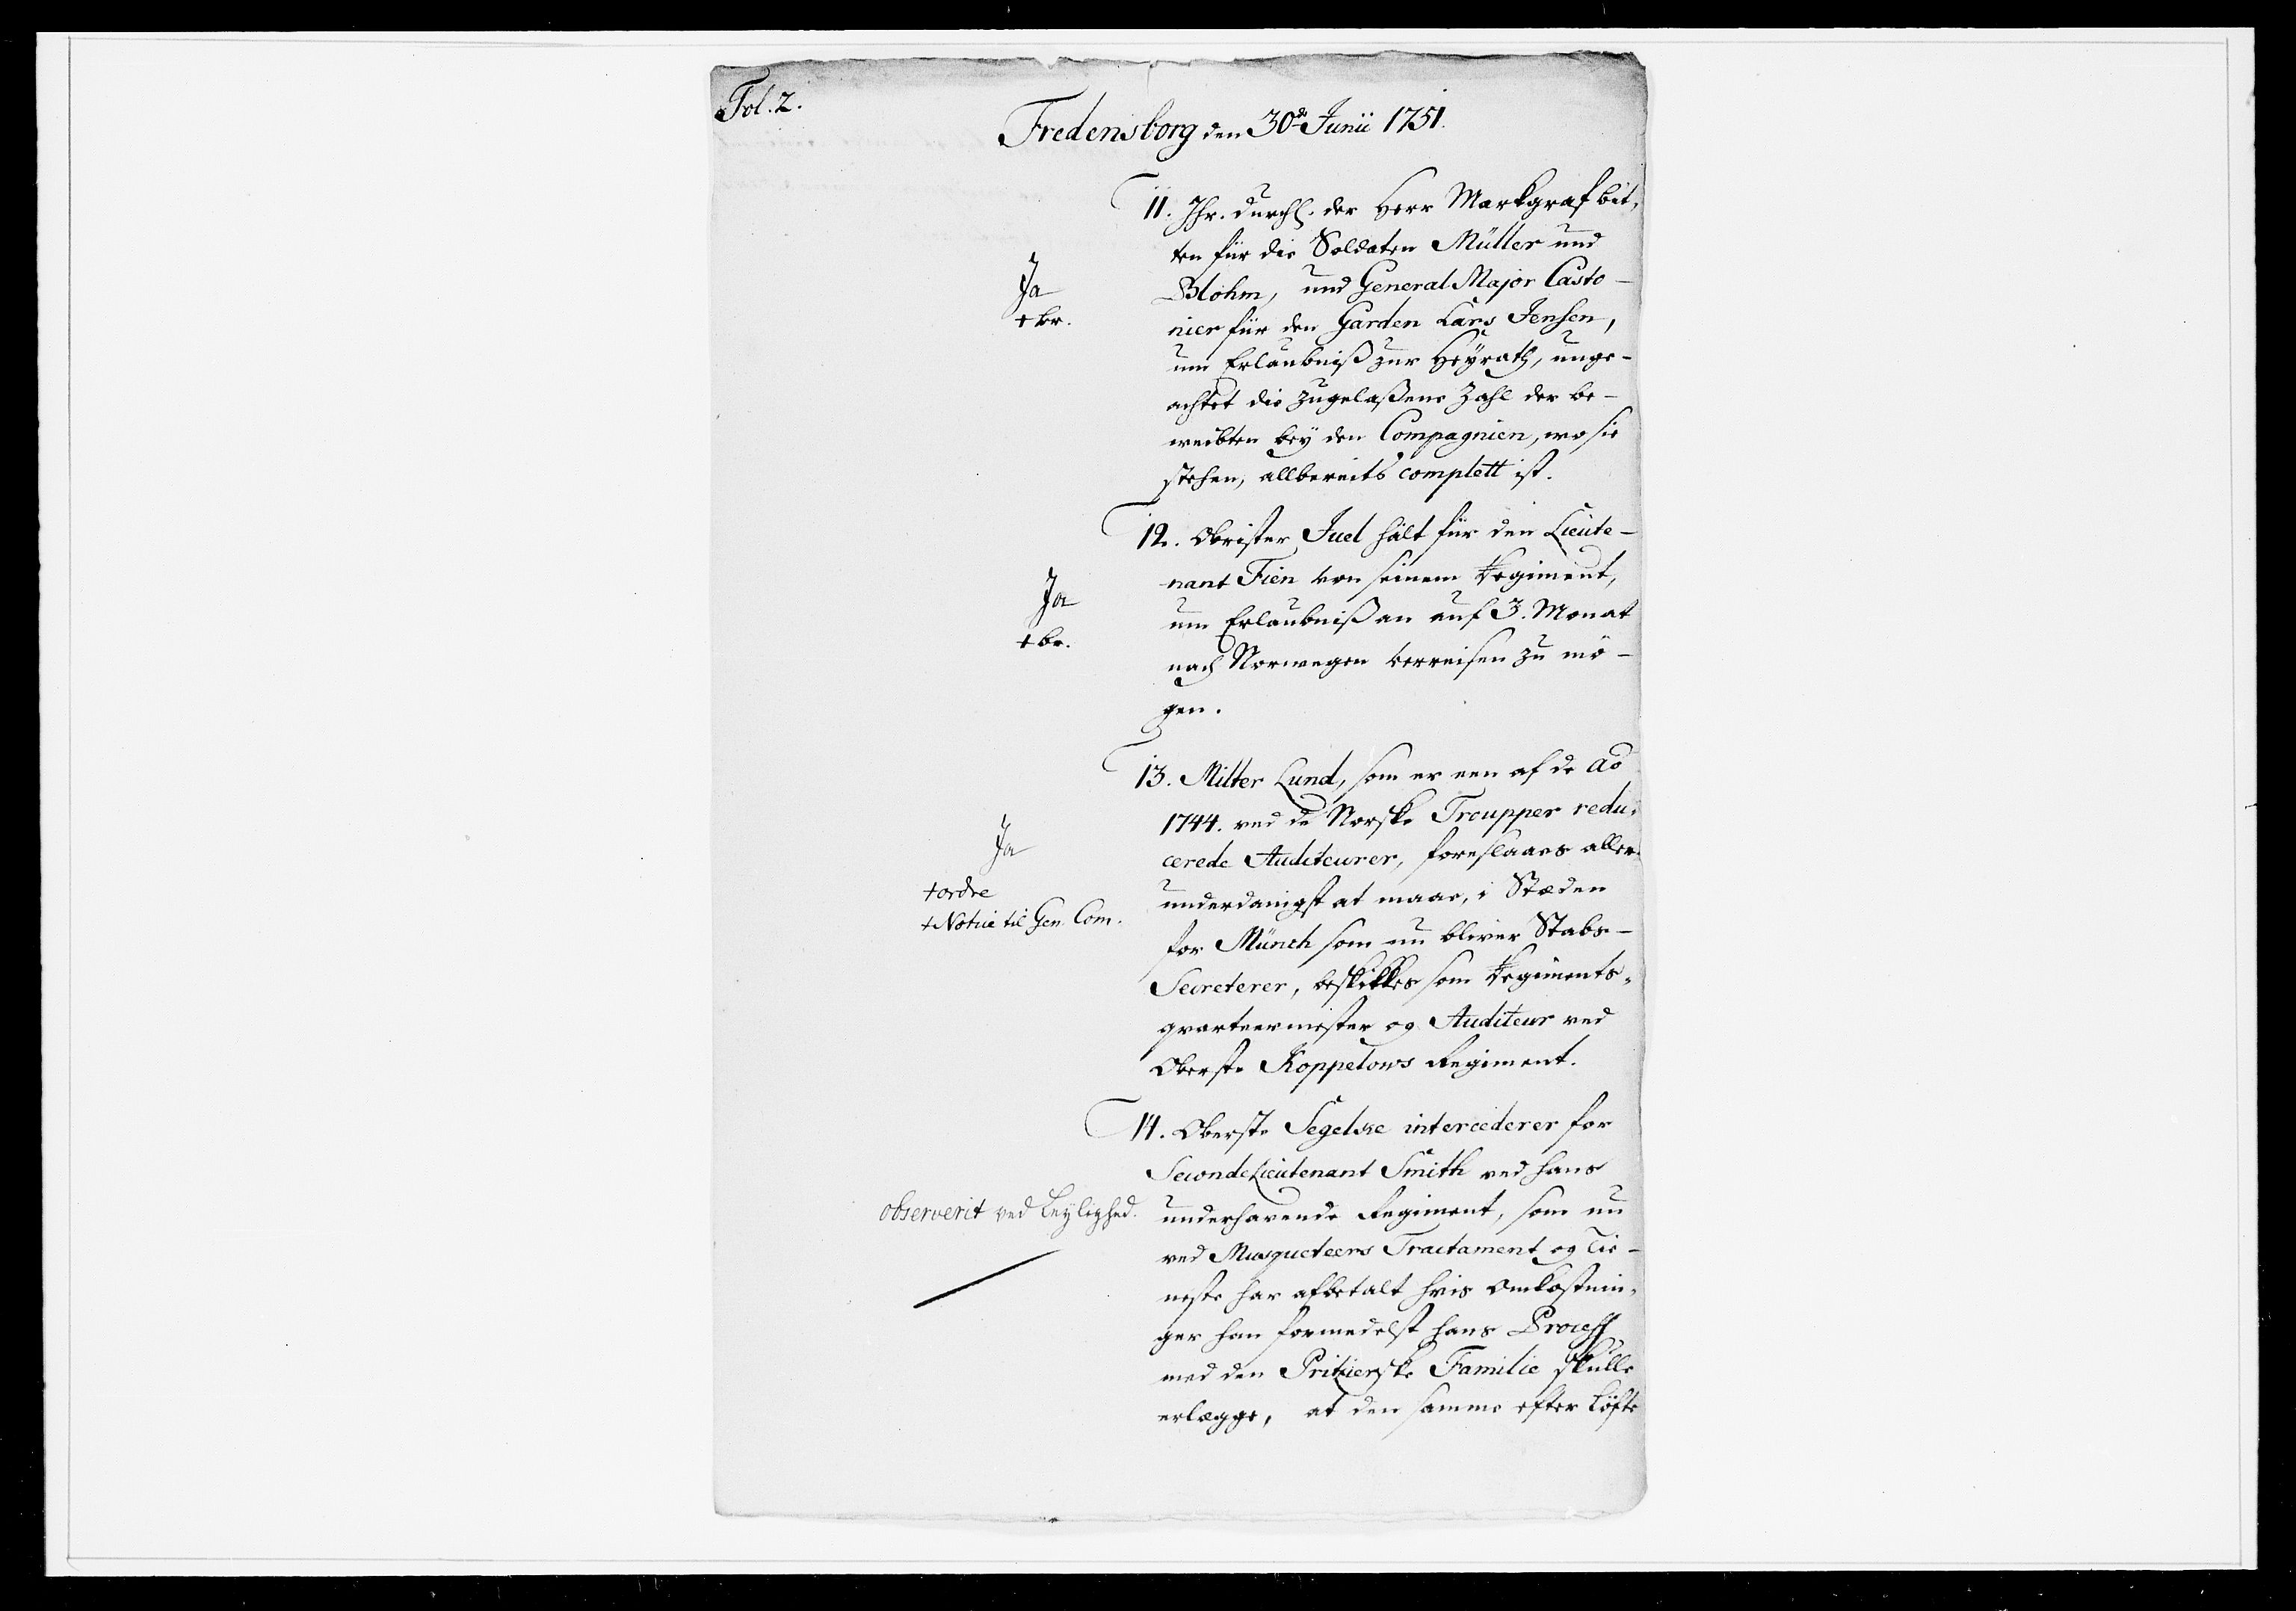 Fol. 2.
Fredensborg den 30de Junii 1751.
11. Ihr. Durchl. der Herr Markgraf bit,
ten für die Soldaten Müller und
Blohm, und General Major Casto-
nier für den Garden Lars Jensen,
um Erlaubniß zur Heyrath, unge-
achtet die zugelaßene Zahl der be-
weibten bey den Compagnien, wo sie
stehen, allbereits complett ist.
Ja
+ br.
12. Obrister Juel hält für den Lieute-
nant Fien von seinem Regiment,
um Erlaubniß an auf 3. Monat
nach Norwegen verreisen zu mö-
gen.
Ja
+ br.
13. Milter Lund, som er een af de ao
1744. ved de Norske Troupper redu,
cerede Auditeurer, foreslaaes aller,
underdanigst at maae, i Stæden
for Münch som nu bliver Stabs-
Secreterer, beskikkes som Regiments,
qvarteermester og Auditeur ved
Oberste Koppelows Regiment.
Ja
+ ordre
+ Notice til Gen. Com.
14. Oberste Segelcke intercederer for
Seconde Lieutenant Smith ved hans
underhavende Regiment, som nu
ved Musqueteers Tractament og Tie-
neste har afbetalt hvis Omkostnin,
ger han formedelst hans Process
med den Pritzierske Familie skulle
erlægge, at den samme efter Løfte
observerit ved Leylighed.